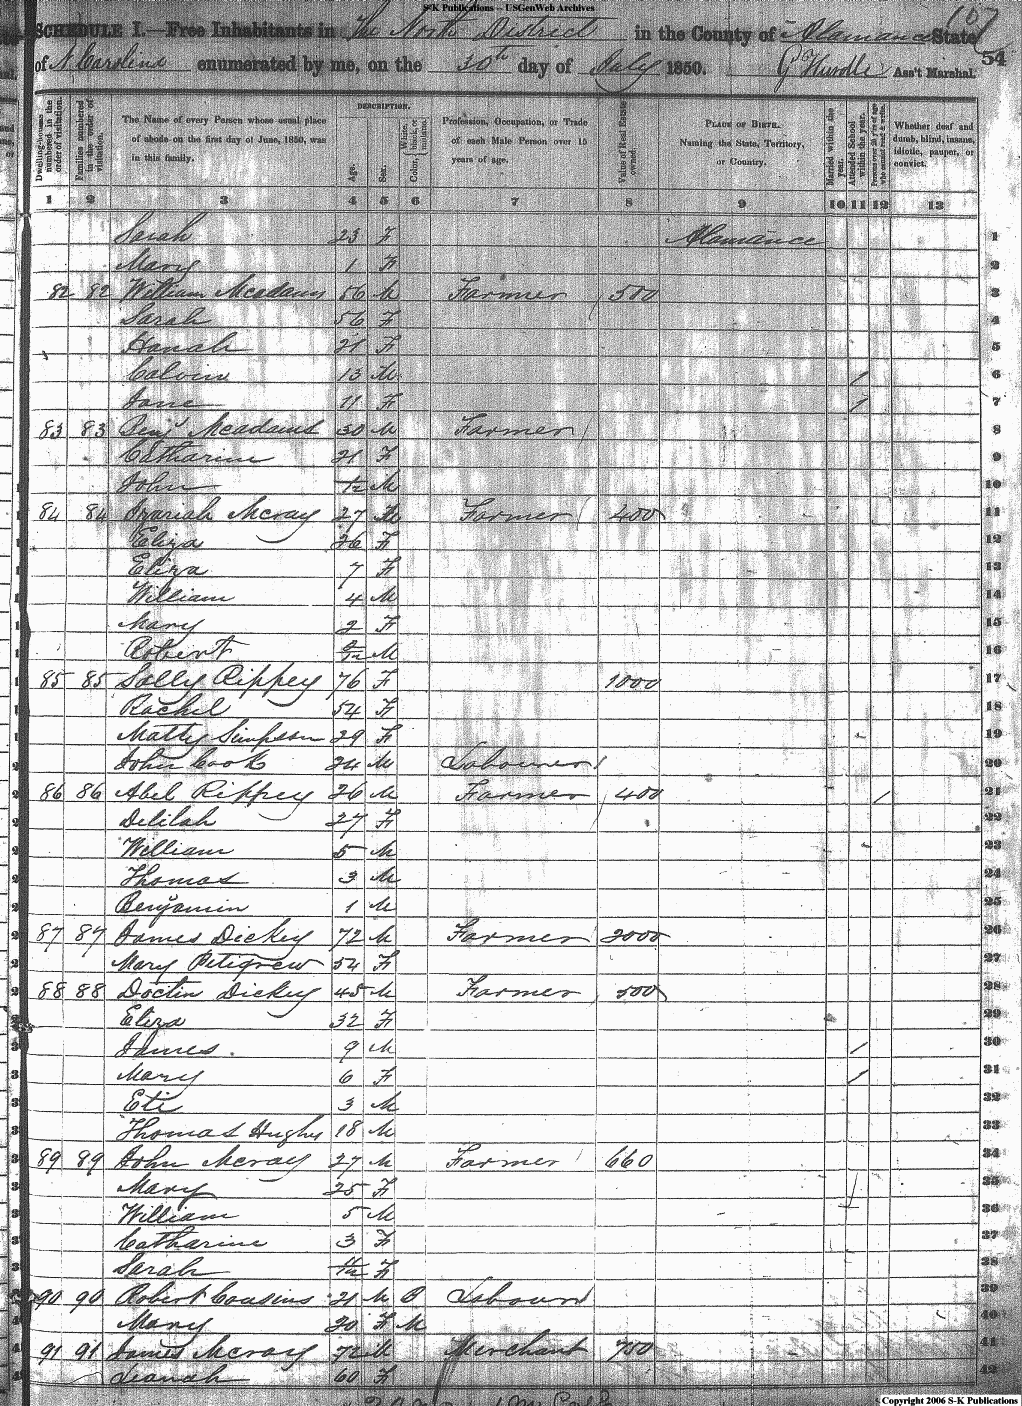 S-K Publications -- USGenWeb Archives
107
SCHEDULE I.—Free Inhabitants in The North District in the County of Alamance State 54
of N. Carolina enumerated by me, on the 30th day of July 1850. Ass't Marshal.
Dwelling-houses numbered in the order of visitation.
Families numbered in the order of visitation.
The Name of every Person whose usual place of abode on the first day of June, 1850, was in this family.
DESCRIPTION.
Age.
Sex.
Color, White, black, or mulatto.
Profession, Occupation, or Trade of each Male Person over 15 years of age.
Value of Real Estate owned.
PLACE OF BIRTH. Naming the State, Territory, or Country.
Married within the year.
Attended School within the year.
Persons over 20 y'rs of age who cannot read & write.
Whether deaf and dumb, blind, insane, idiotic, pauper, or convict.
1 2 3 4 5 6 7 8 9 10 11 12 13
Sarah 23 F Alamance 1
Mary 1 F 2
82 82 William Mcadams 56 M Farmer 500 3
Sarah 56 F 4
Hanah 21 F 5
Calvin 13 M 1 6
Jane 11 F 1 7
83 83 Benj Mcadams 30 M Farmer 8
Catharine 21 F 9
John M 10
84 84 Mcray 27 M Farmer 400 11
Eliza 26 F 12
Eliza 7 F 13
William 4 M 14
Mary 2 F 15
Robert 2/12 M 16
85 85 Sally Rippey 76 F 1000 17
Rachel 54 F 18
Matty Simpson 29 F 19
John Cook 24 M Labourer 20
86 86 Abel Rippey 26 M Farmer 400 1 21
Delilah 27 F 22
William 5 M 23
Thomas 3 M 24
Benjamin 1 M 25
87 87 James Dickey 72 M Farmer 2000 26
Mary Petigrew 54 F 27
88 88 Doctin Dickey 45 M Farmer 500 28
Eliza 32 F 29
James 9 M 1 30
Mary 6 F 1 31
Eli 3 M 32
Thomas Hughs 18 M 33
89 89 John Mcray 27 M Farmer 660 34
Mary 25 F 35
William 5 M 36
Catharine 3 F 37
Sarah F 38
90 90 Robert Cousins 21 M B Labour 39
Mary 20 F M 40
91 91 James Mcray 72 M Merchant 750 41
60 F 42
Copyright 2006 S-K Publications